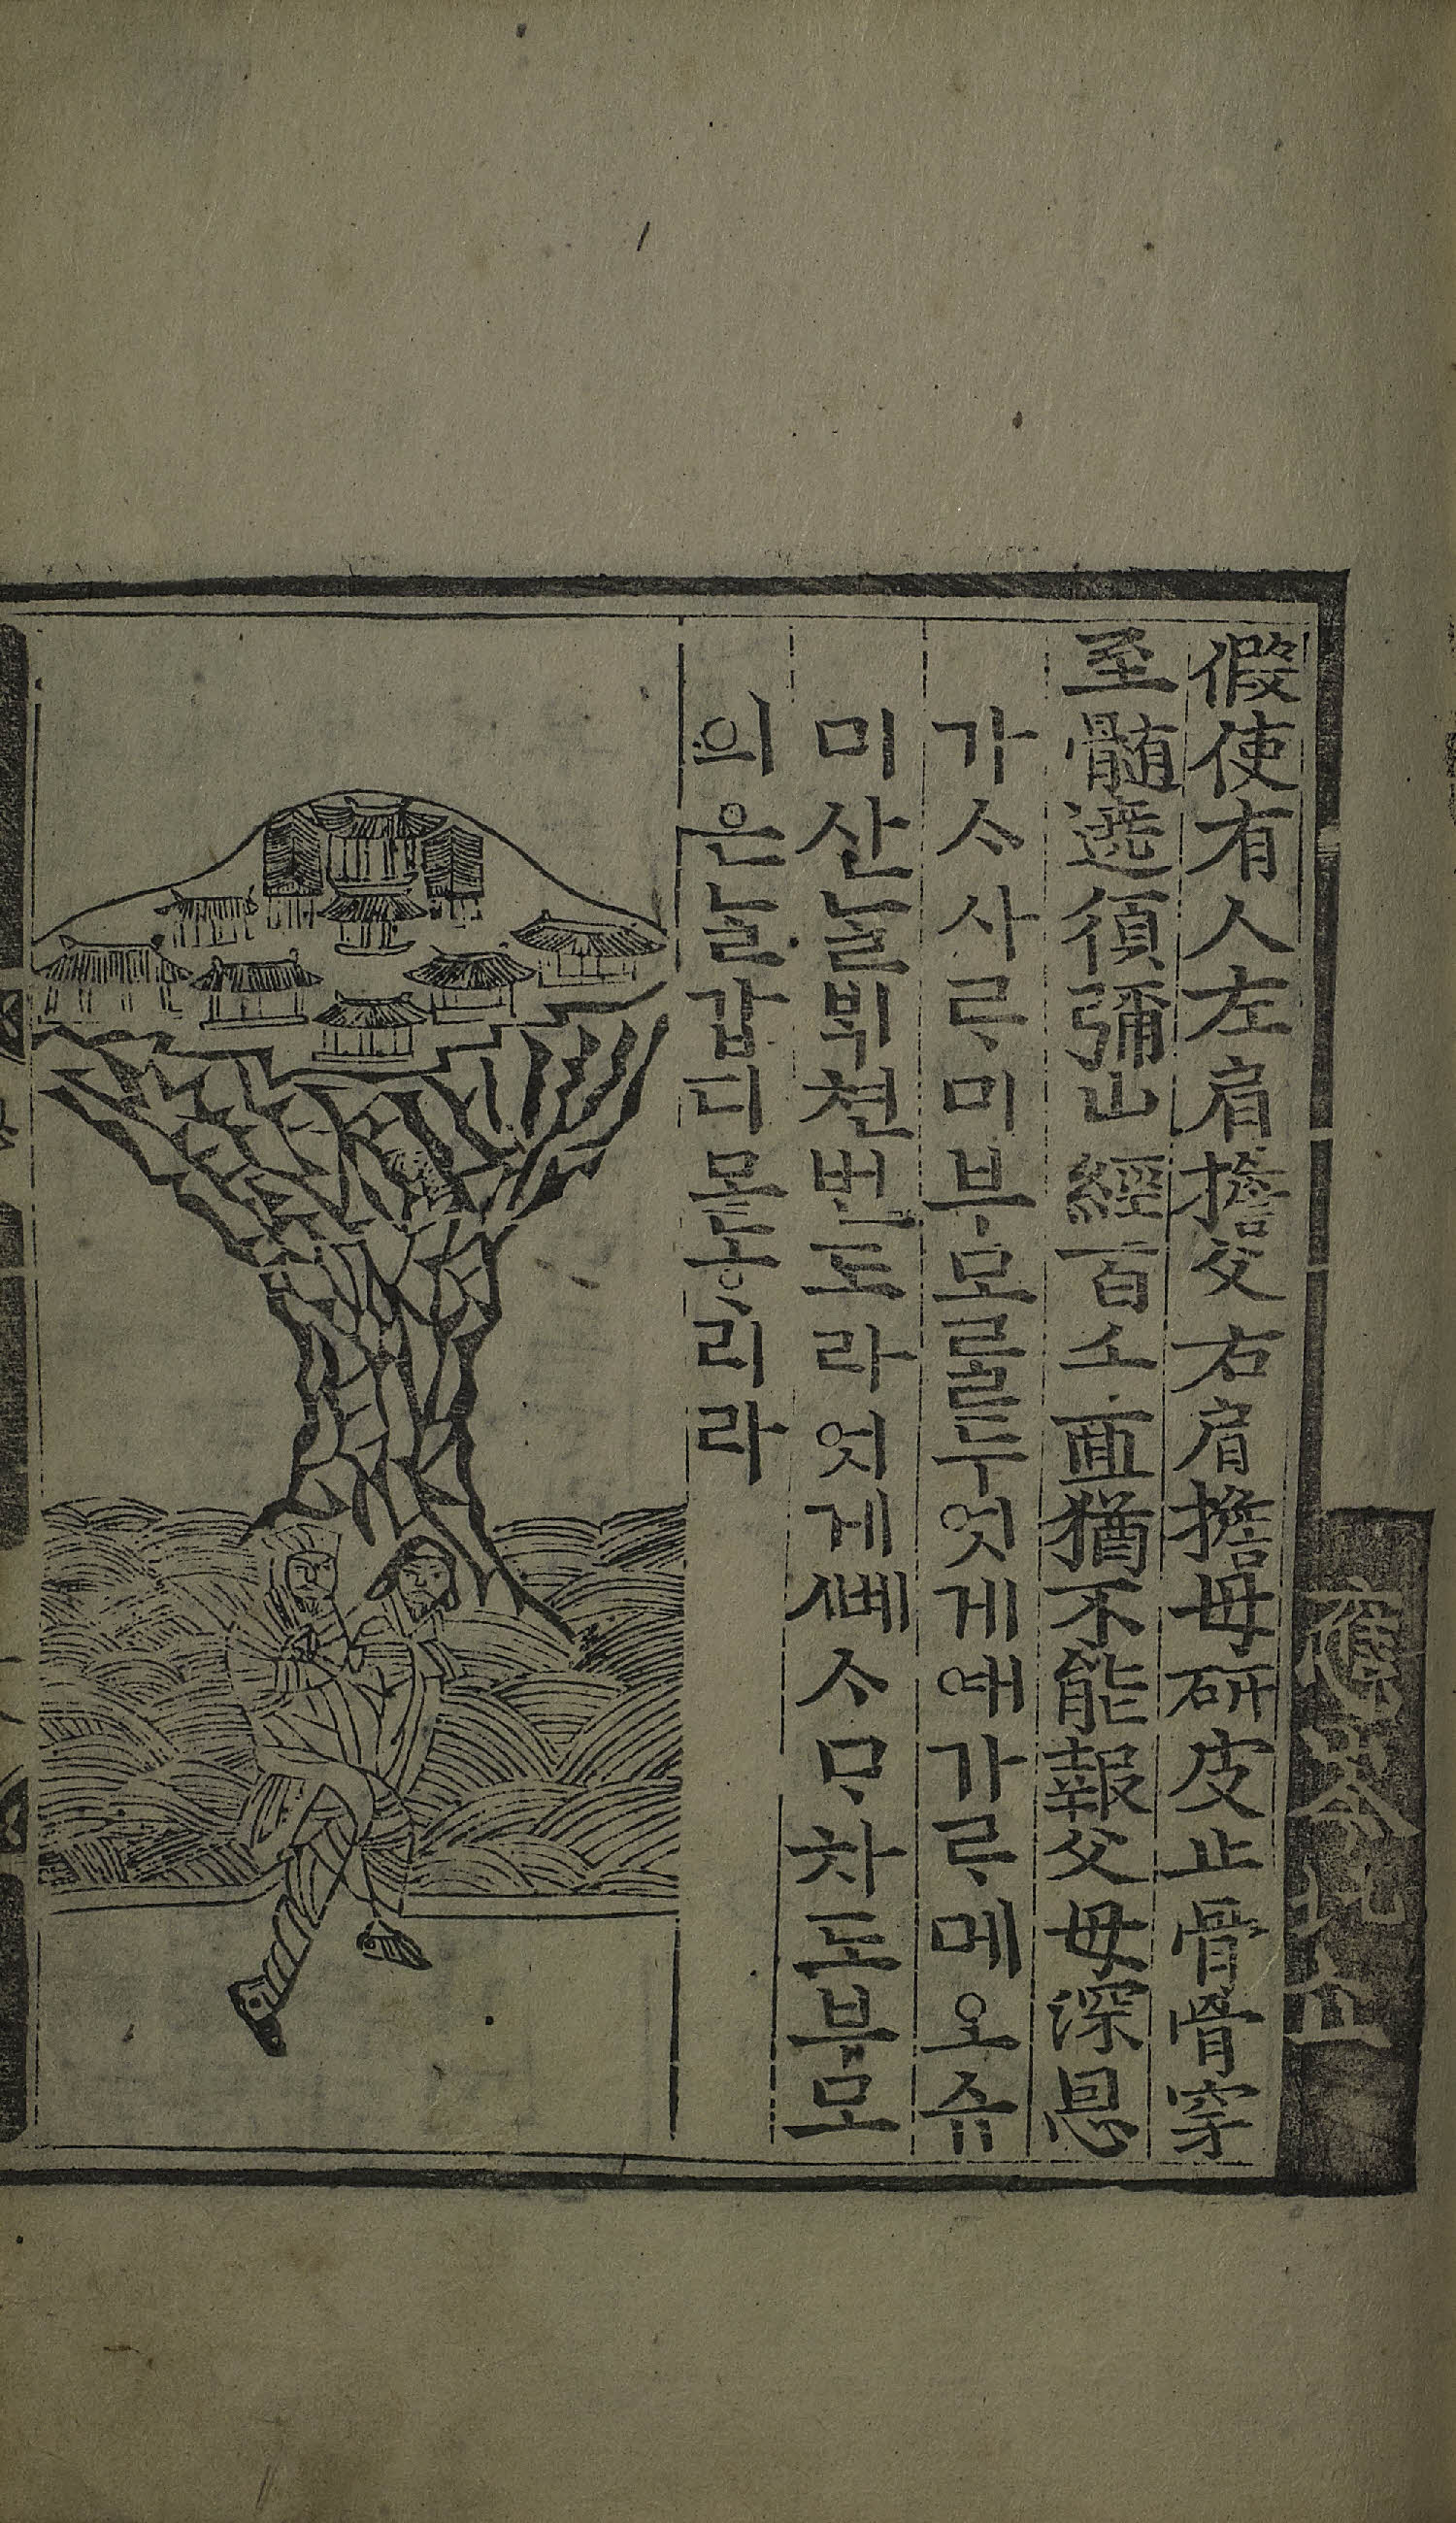 假使有人左肩擔父右肩擔母研皮止骨骨穿
至髄遶湏彌山經百千匝猶不能報父母深恩
가ᄉᆞ사ᄅᆞ미부모ᄅᆞᆯ두엇게예가ᄅᆞ메오슈
미산ᄂᆞᆯᄇᆡᆨ쳔번도라엇게ᄲᅦᄉᆞᄆᆞ차도부모
의은ᄂᆞᆯ갑디몯ᄒᆞ리라